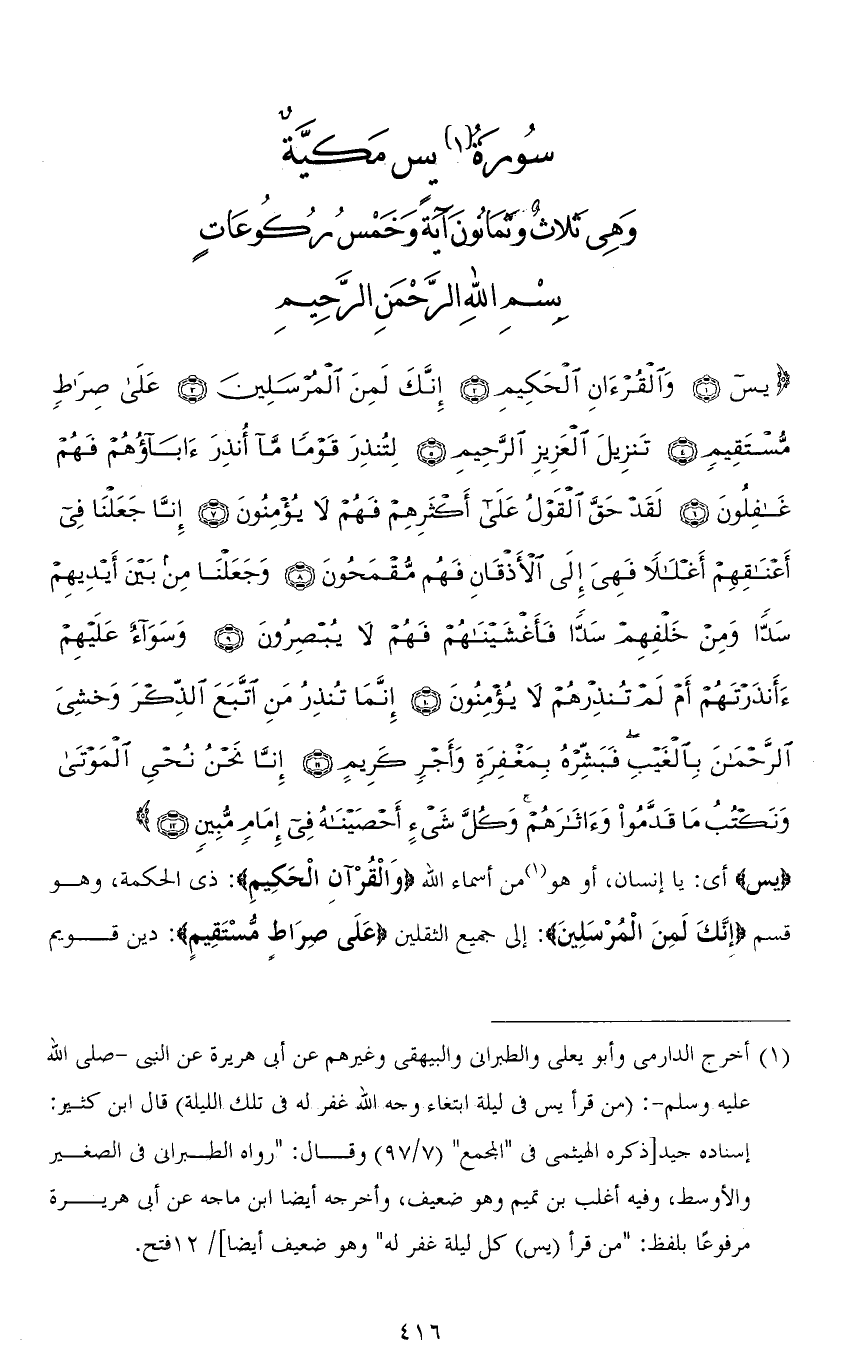 سُورَةُ(١) يس مَكِيَّةٌ
وَهِى ثَلاثٌ وَثَمَانُونَ آيَةً وَخَمْسُ رُكُوعَاتٍ
بِسْمِ اللهِ الرَّحْمَنِ الرَّحِيمِ
﴿يسٓ ﴿١﴾ وَٱلْقُرْءَانِ ٱلْحَكِيمِ ﴿٢﴾ إِنَّكَ لَمِنَ ٱلْمُرْسَلِينَ ﴿٣﴾ عَلَىٰ صِرَٰطٍ
مُّسْتَقِيمٍ ﴿٤﴾ تَنزِيلَ ٱلْعَزِيزِ ٱلرَّحِيمِ ﴿٥﴾ لِتُنذِرَ قَوْمًا مَّآ أُنذِرَ ءَابَآؤُهُمْ فَهُمْ
غَـٰفِلُونَ ﴿٦﴾ لَقَدْ حَقَّ ٱلْقَوْلُ عَلَىٰٓ أَكْثَرِهِمْ فَهُمْ لَا يُؤْمِنُونَ ﴿٧﴾ إِنَّا جَعَلْنَا فِىٓ
أَعْنَـٰقِهِمْ أَغْلَـٰلًا فَهِىَ إِلَى ٱلْأَذْقَانِ فَهُم مُّقْمَحُونَ ﴿٨﴾ وَجَعَلْنَا مِنۢ بَيْنِ أَيْدِيهِمْ
سَدًّا وَمِنْ خَلْفِهِمْ سَدًّا فَأَغْشَيْنَـٰهُمْ فَهُمْ لَا يُبْصِرُونَ ﴿٩﴾ وَسَوَآءٌ عَلَيْهِمْ
ءَأَنذَرْتَهُمْ أَمْ لَمْ تُنذِرْهُمْ لَا يُؤْمِنُونَ ﴿١٠﴾ إِنَّمَا تُنذِرُ مَنِ ٱتَّبَعَ ٱلذِّكْرَ وَخَشِىَ
ٱلرَّحْمَـٰنَ بِٱلْغَيْبِ ۖ فَبَشِّرْهُ بِمَغْفِرَةٍ وَأَجْرٍ كَرِيمٍ ﴿١١﴾ إِنَّا نَحْنُ نُحْىِ ٱلْمَوْتَىٰ
وَنَكْتُبُ مَا قَدَّمُوا۟ وَءَاثَـٰرَهُمْ ۚ وَكُلَّ شَىْءٍ أَحْصَيْنَـٰهُ فِىٓ إِمَامٍ مُّبِينٍ ﴿١٢﴾﴾
﴿يس﴾ أى: يا إنسان، أو هو(١) من أسماء الله ﴿وَالْقُرْآنِ الْحَكِيمِ﴾: ذى الحكمة، وهو
قسم ﴿إِنَّكَ لَمِنَ الْمُرْسَلِينَ﴾: إلى جميع الثقلين ﴿عَلَى صِرَاطٍ مُّسْتَقِيمٍ﴾: دين قويم
(١) أخرج الدارمى وأبو يعلى والطبرانى والبيهقى وغيرهم عن أبى هريرة عن النبى -صلى الله
عليه وسلم-: (من قرأ يس فى ليلة ابتغاء وجه الله غفر له فى تلك الليلة) قال ابن كثير:
إسناده جيد[ذكره الهيثمى فى "المجمع" (٩٧/٧) وقال: "رواه الطبرانى فى الصغير
والأوسط، وفيه أغلب بن تميم وهو ضعيف، وأخرجه أيضا ابن ماجه عن أبى هريرة
مرفوعًا بلفظ: "من قرأ (يس) كل ليلة غفر له" وهو ضعيف أيضا]/ ١٢فتح.
٤١٦